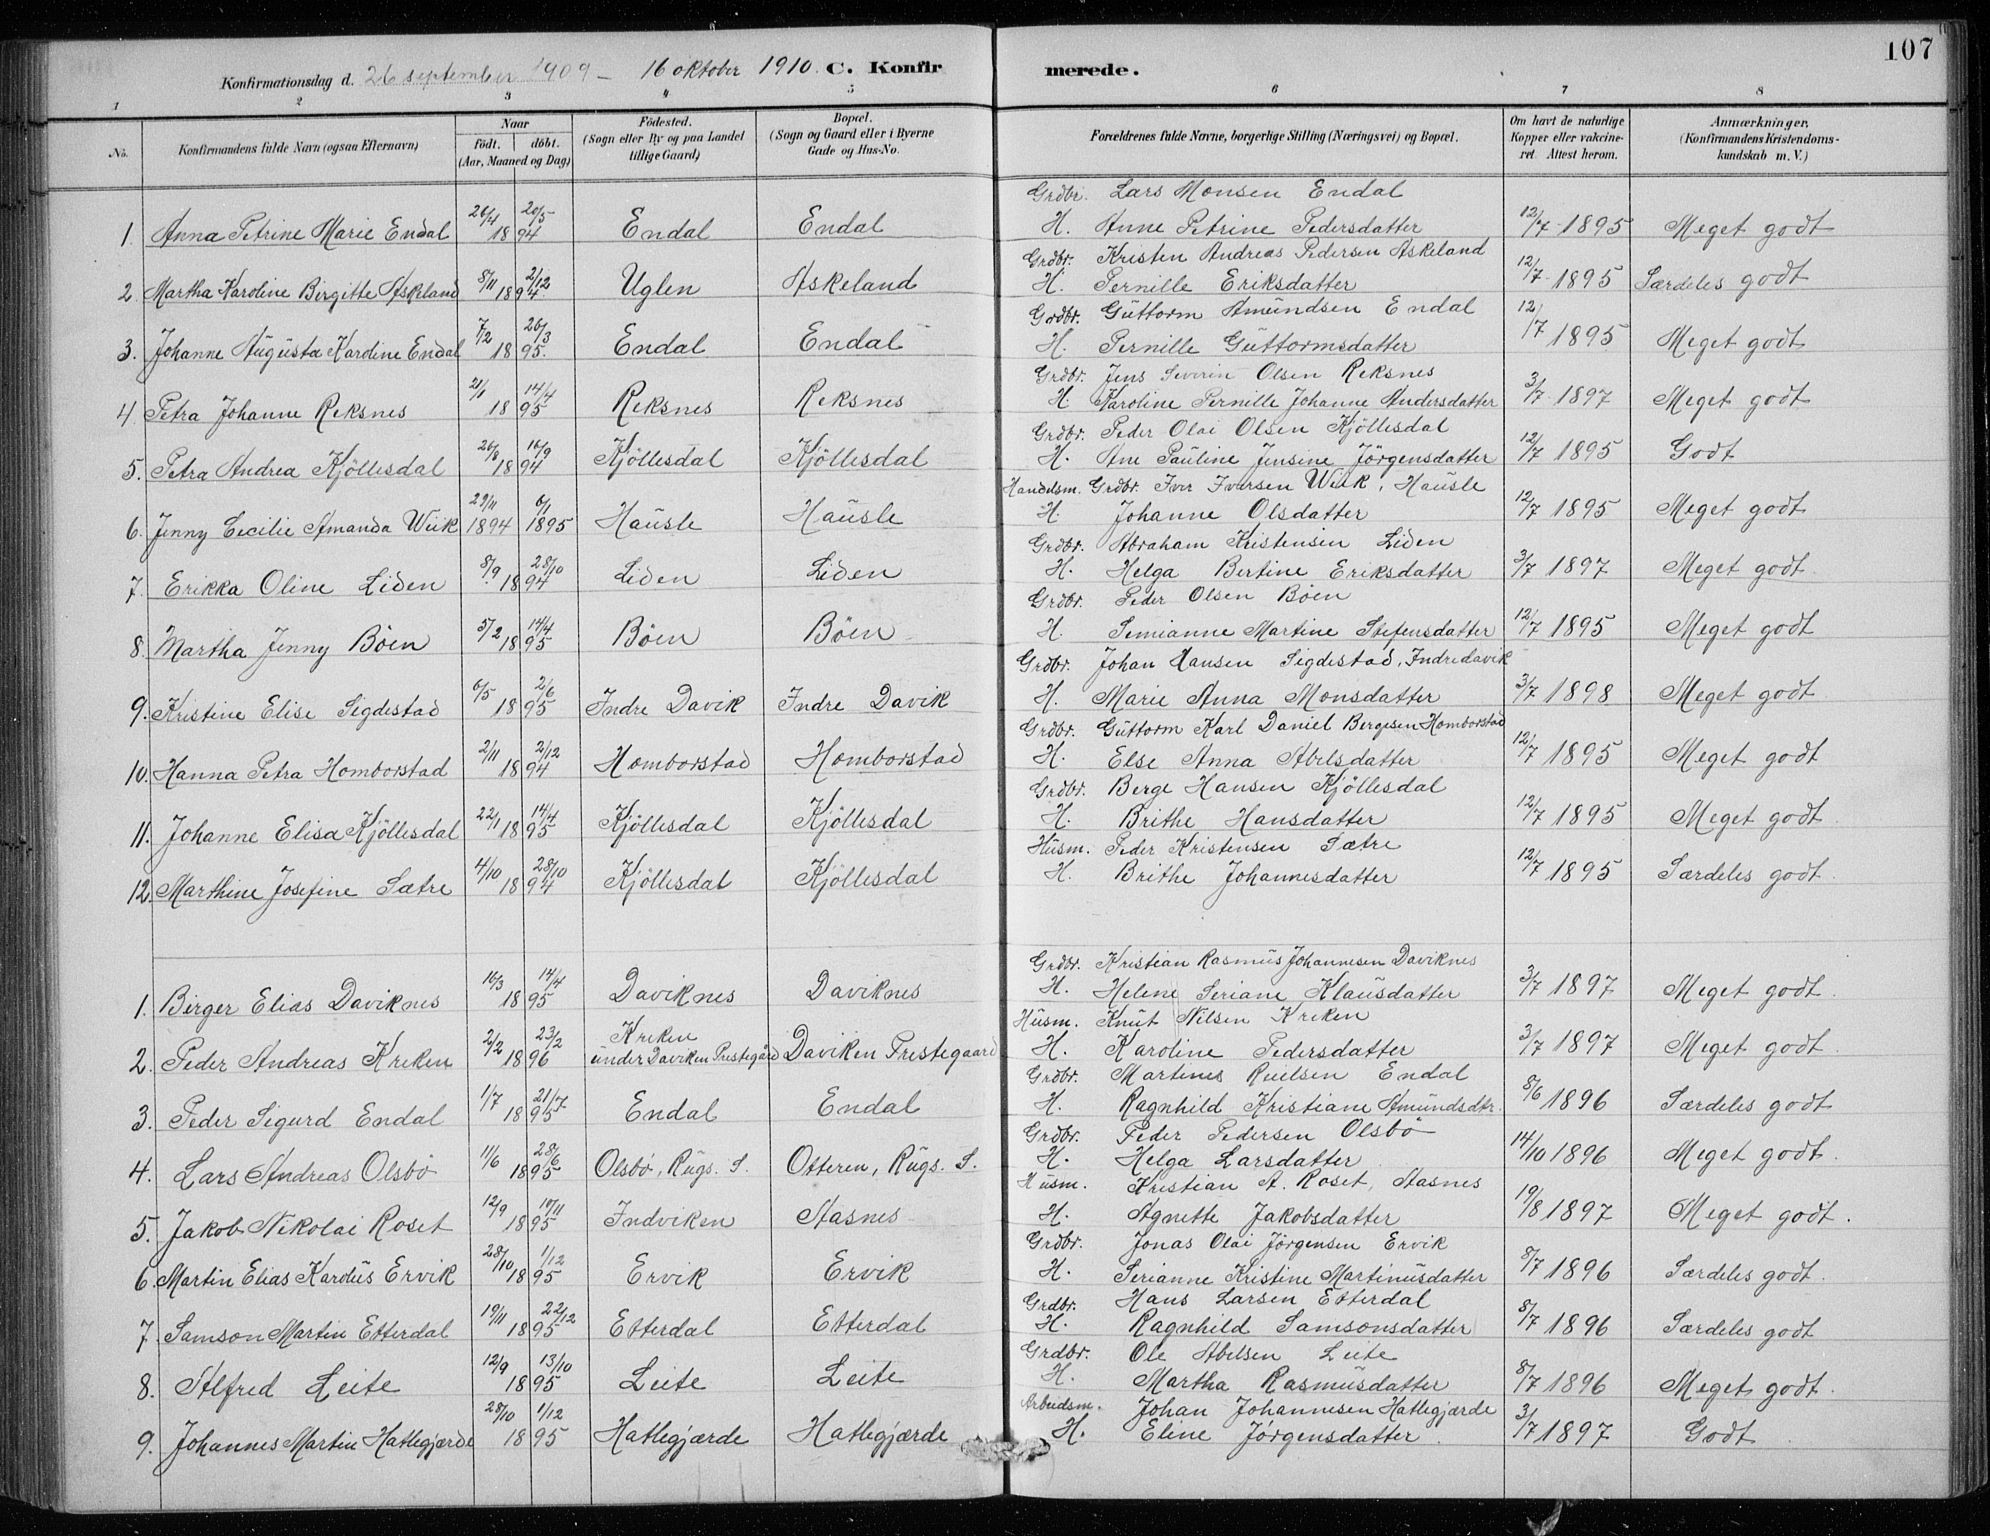 107
Konfirmationsdag d. 26 september 1909 - 16 oktober 1910. C. Konfirmerede.
1 2 3 4 5 6 7 8
No. Konfirmandens fulde Navn (ogsaa Efternavn) Naar födt. döbt. (Aar, Maaned og Dag) Födested. (Sogn eller By og paa Landet tillige Gaard) Bopæl. (Sogn og Gaard eller i Byerne Gade og Hus-No. Forældrenes fulde Navne, borgerlige Stilling (Næringsvei) og Bopæl. Om havt de naturlige Kopper eller vakcineret. Attest herom. Anmærkninger, (Konfirmandens Kristendomskundskab m. V.)
Grdbr. Lars Monsen Endal
1. Anna Petrine Marie Endal 26/4 20/5 1894 Endal Endal H. Anne Petrine Pedersdatter 12/7 1895 Meget godt
Grdbr. Kristen Andreas Pedersen Askeland
2. Martha Karoline Birgitte Askeland 8/11 2/12 1894 Uglen Askeland H. Pernille Eriksdatter 12/7 1895 Særdeles godt
Grdbr. Guttorm Amundsen Endal
3. Johanne Augusta Karoline Endal 7/2 26/3 1895. Endal Endal H. Pernille Guttormsdatter 12/7 1895 Meget godt
Grdbr. Jens Severin Olsen Reksnes
4 Petra Johanne Reksnes 21/1 14/4 1895 Reksnes Reksnes H. Karoline Pernille Johanne Andersdatter 3/7 1897 Meget godt
Grdbr. Peder Olai Olsen Kjöllesdal
5. Petra Andrea Kjöllesdal 26/8 16/9 1894 Kjöllesdal Kjöllesdal H. Ane Pauline Jensine Jörgensdatter 12/7 1895 Godt
Handelsm. Grdbr. Iver Iversen Wiik, Hausle
6. Jenny Cecilie Amanda Wiik 29/11 1894 6/1 1895 Hausle Hausle H. Johanne Olsdatter 12/7 1895 Meget godt
Grdbr. Abraham Kristensen Liden
7. Erikka Oline Liden 8/9 28/10 1894 Liden Liden H. Helga Bertine Eriksdatter 3/7 1897 Meget godt
Grdbr. Peder Olsen Böen
8. Martha Jenny Böen 5/2 14/4 1895 Böen Böen H. Semianne Martine Stefensdatter 12/7 1895 Meget godt
Grdbr. Johan Hansen Sigdestad, Indredavik
9. Kristine Elise Sigdestad 6/5 2/6 1895 Indre Davik Indre Davik H. Marie Anna Monsdatter 3/7 1898 Meget godt
Grdbr. Guttorm Karl Daniel Bergesen Homborstad
10. Hanna Petra Homborstad 2/11 2/12 1894 Homborstad Homborstad H. Else Anna Abelsdatter 12/7 1895 Meget godt
Grdbr. Berge Hansen Kjöllesdal
11. Johanne Elisa Kjöllesdal 22/1 14/4 1895 Kjöllesdal Kjöllesdal H. Brithe Hansdatter 12/7 1895 Meget godt
Husm. Peder Kristensen Sætre
12. Marthine Josefine Sætre 4/10 28/10 1894 Kjöllesdal Kjöllesdal H. Brithe Johannesdatter 12/7 1895 Særdeles godt.
Grdbr. Kristian Rasmus Johannesen Daviknes
1. Birger Elias Daviknes 16/3 14/4 1895 Daviknes Daviknes H. Helene Seriane Klausdatter 3/7 1897 Meget godt.
Husm. Knut Nilsen Kreken
2. Peder Andreas Kreken 2/2 23/2 1896 Kreken under Daviken Prestegård Daviken Prestegaard H. Karoline Pedersdatter 3/7 1897 Meget godt.
Grdbr. Martines Endal
3. Peder Sigurd Endal 1/7 21/7 1895 Endal Endal H. Ragnhild Kristiane Amundsdtr. 8/6 1896 Særdeles godt
Grdbr. Peder Pedersen Olsbö
4. Lars Andreas Olsbö 11/6 28/6 1895 Olsbö, Rugs. S. Otteren, Rugs. S. H. Helga Larsdatter 14/10 1896 Meget godt.
Husm. Kristian A. Roset, Aasnes
5. Jakob Nikolai Roset 12/9 10/11 1895 Indviken Aasnes H. Agnette Jakobsdatter 19/8 1897 Meget godt.
Grdbr. Jonas Olai Jörgensen Ervik
6. Martin Elias Karolus Ervik 28/10 1/12 1895 Ervik Ervik H. Serianne Kristine Martinusdatter 8/7 1896 Særdeles godt.
Grdbr. Hans Larsen Etterdal
7. Samson Martin Etterdal 19/11 22/12 1895 Etterdal Etterdal H. Ragnhild Samsonsdatter 8/7 1896 Særdeles godt
Grdbr. Ole Abelsen Leite
8. Alfred Leite 12/9 13/10 1895 Leite Leite H. Martha Rasmusdatter 8/7 1896 Meget godt.
Arbeidsm. Johan Johannesen Hatlegjærde
9. Johannes Martin Hatlegjærde 28/10 1/12 1895 Hatlegjærde Hatlegjærde H. Eline Jörgensdatter. 3/7 1897 Godt